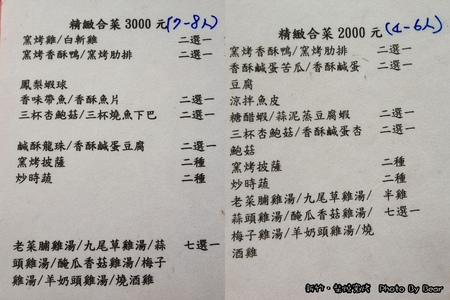 精緻合菜 3000 元(7-8人)
窯烤雞/白斬雞 二選一
窯烤香酥鴨/窯烤肋排 二選一
鳳梨蝦球
香味帶魚/香酥魚片 二選一
三杯杏鮑菇/三杯燒魚下巴 二選一
鹹酥龍珠/香酥鹹蛋豆腐 二選一
窯烤披薩 二種
炒時蔬 二種
老菜脯雞湯/九尾草雞湯/蒜 七選一
頭雞湯/醃瓜香菇雞湯/梅子
雞湯/羊奶頭雞湯/燒酒雞
精緻合菜 2000 元(4-6人)
窯烤香酥鴨/窯烤肋排 二選一
香酥鹹蛋苦瓜/香酥鹹蛋 二選一
豆腐
涼拌魚皮
糖醋蝦/蒜泥蒸豆腐蝦 二選一
三杯杏鮑菇/香酥鹹蛋杏 二選一
鮑菇
窯烤披薩 二種
炒時蔬 二種
老菜脯雞湯/九尾草雞湯/ 半雞
蒜頭雞湯/醃瓜香菇雞湯/ 七選一
梅子雞湯/羊奶頭雞湯/燒
酒雞
Photo By Bear